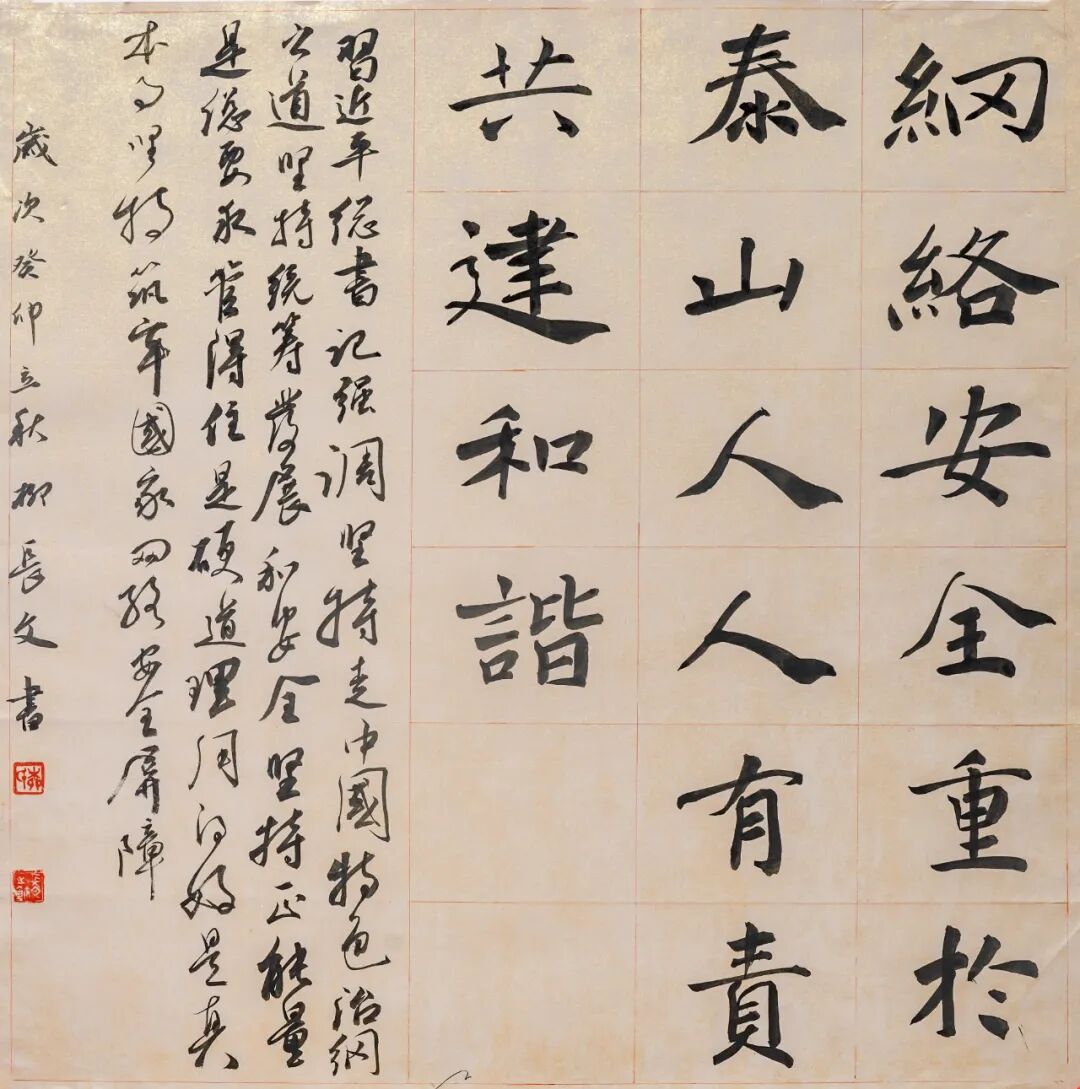 網絡安全重於
泰山人人有責
共建和諧
習近平总書记强调坚持走中國特色治網
之道坚持统筹發展和安全坚持正能量
是总要求管得住是硬道理用得好是真
本事坚持筑牢國家网络安全屏障
歲次癸卯立秋柳長文書